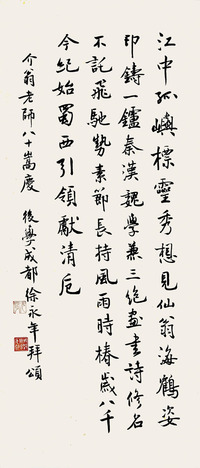 江中孤嶼標靈秀想見仙翁海鶴姿
印鑄一鑪秦漢魏學兼三絕畫書詩修名
不託飛馳勢素節長持風雨時椿歲八千
今紀始蜀西引領獻清卮
介翁老師八十嵩慶
後學成都徐永年拜頌